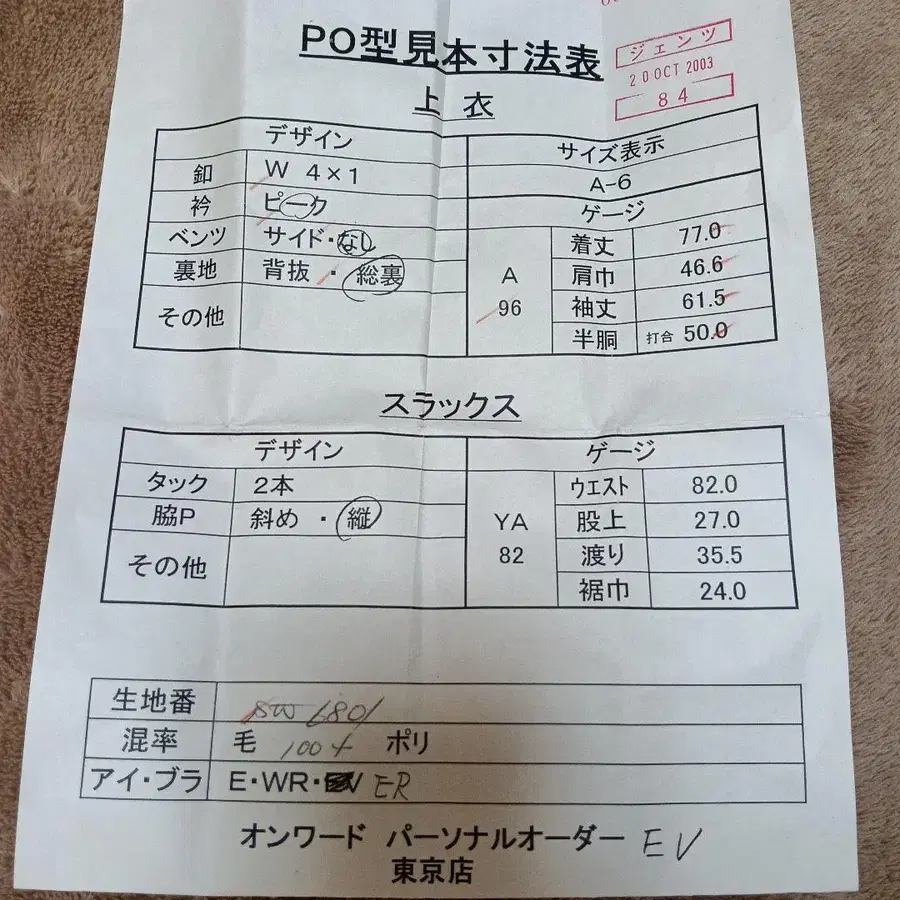 PO型見本寸法表
ジェンツ
20 OCT 2003
84
上 衣
デザイン
サイズ表示
釦 W 4×1
A-6
衿 ピーク
ゲージ
ベンツ サイド・なし
裏地 背抜 ・ 総裏
その他
A
96
着丈 77.0
肩巾 46.6
袖丈 61.5
半胴 打合 50.0
スラックス
デザイン
ゲージ
タック 2本
脇P 斜め ・ 縦
その他
YA
82
ウエスト 82.0
股上 27.0
渡り 35.5
裾巾 24.0
生地番 6801
混率 毛 100 ポリ
アイ・ブラ E・WR・ ER
オンワード パーソナルオーダー EV
東京店